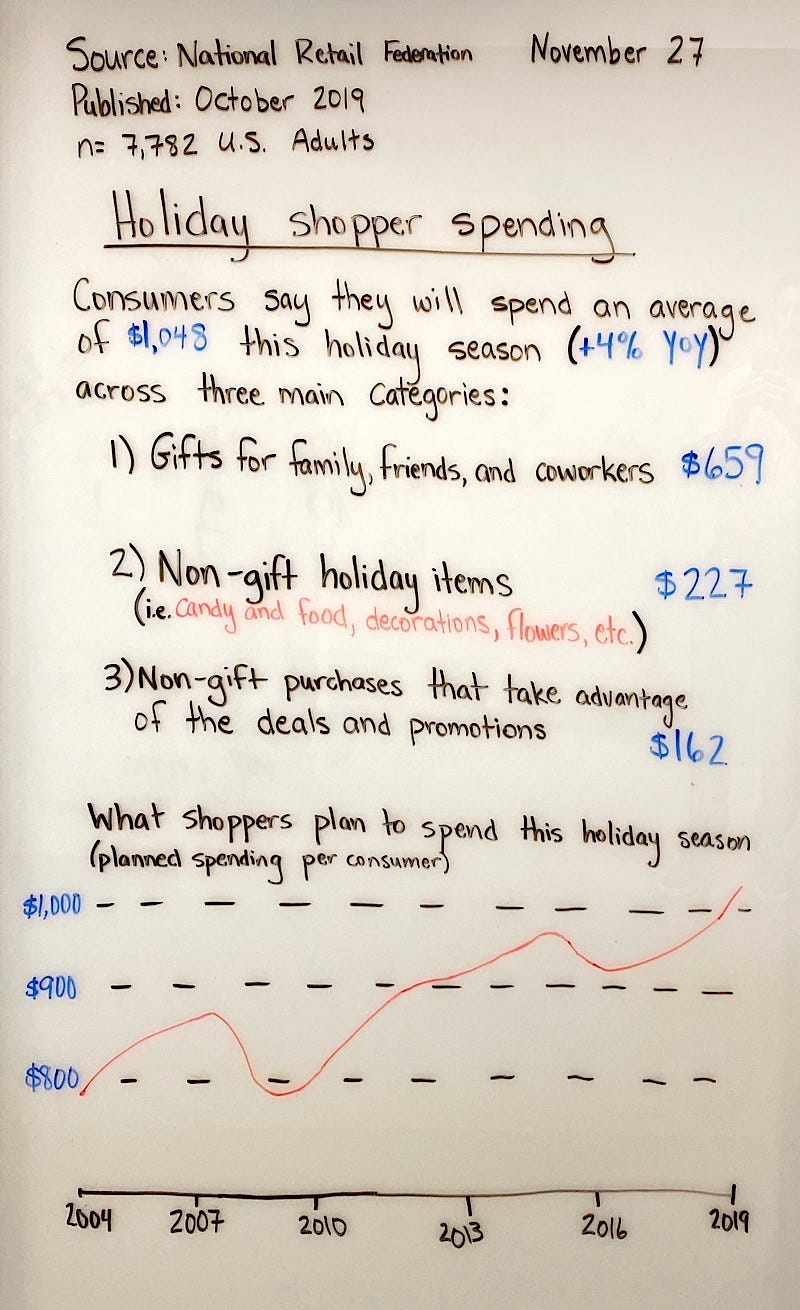 Source: National Retail Federation November 27
Published: October 2019
n= 7,782 U.S. Adults
Holiday shopper spending
Consumers say they will spend an average
of $1,048 this holiday season (+4% YoY)
across three main categories:
1) Gifts for family, friends, and coworkers $659
2) Non-gift holiday items $227
(i.e. candy and food, decorations, flowers, etc.)
3) Non-gift purchases that take advantage
of the deals and promotions
$162
What shoppers plan to spend this holiday season
(planned spending per consumer)
$1,000
$900
$800
2004 2007 2010 2013 2016 2019